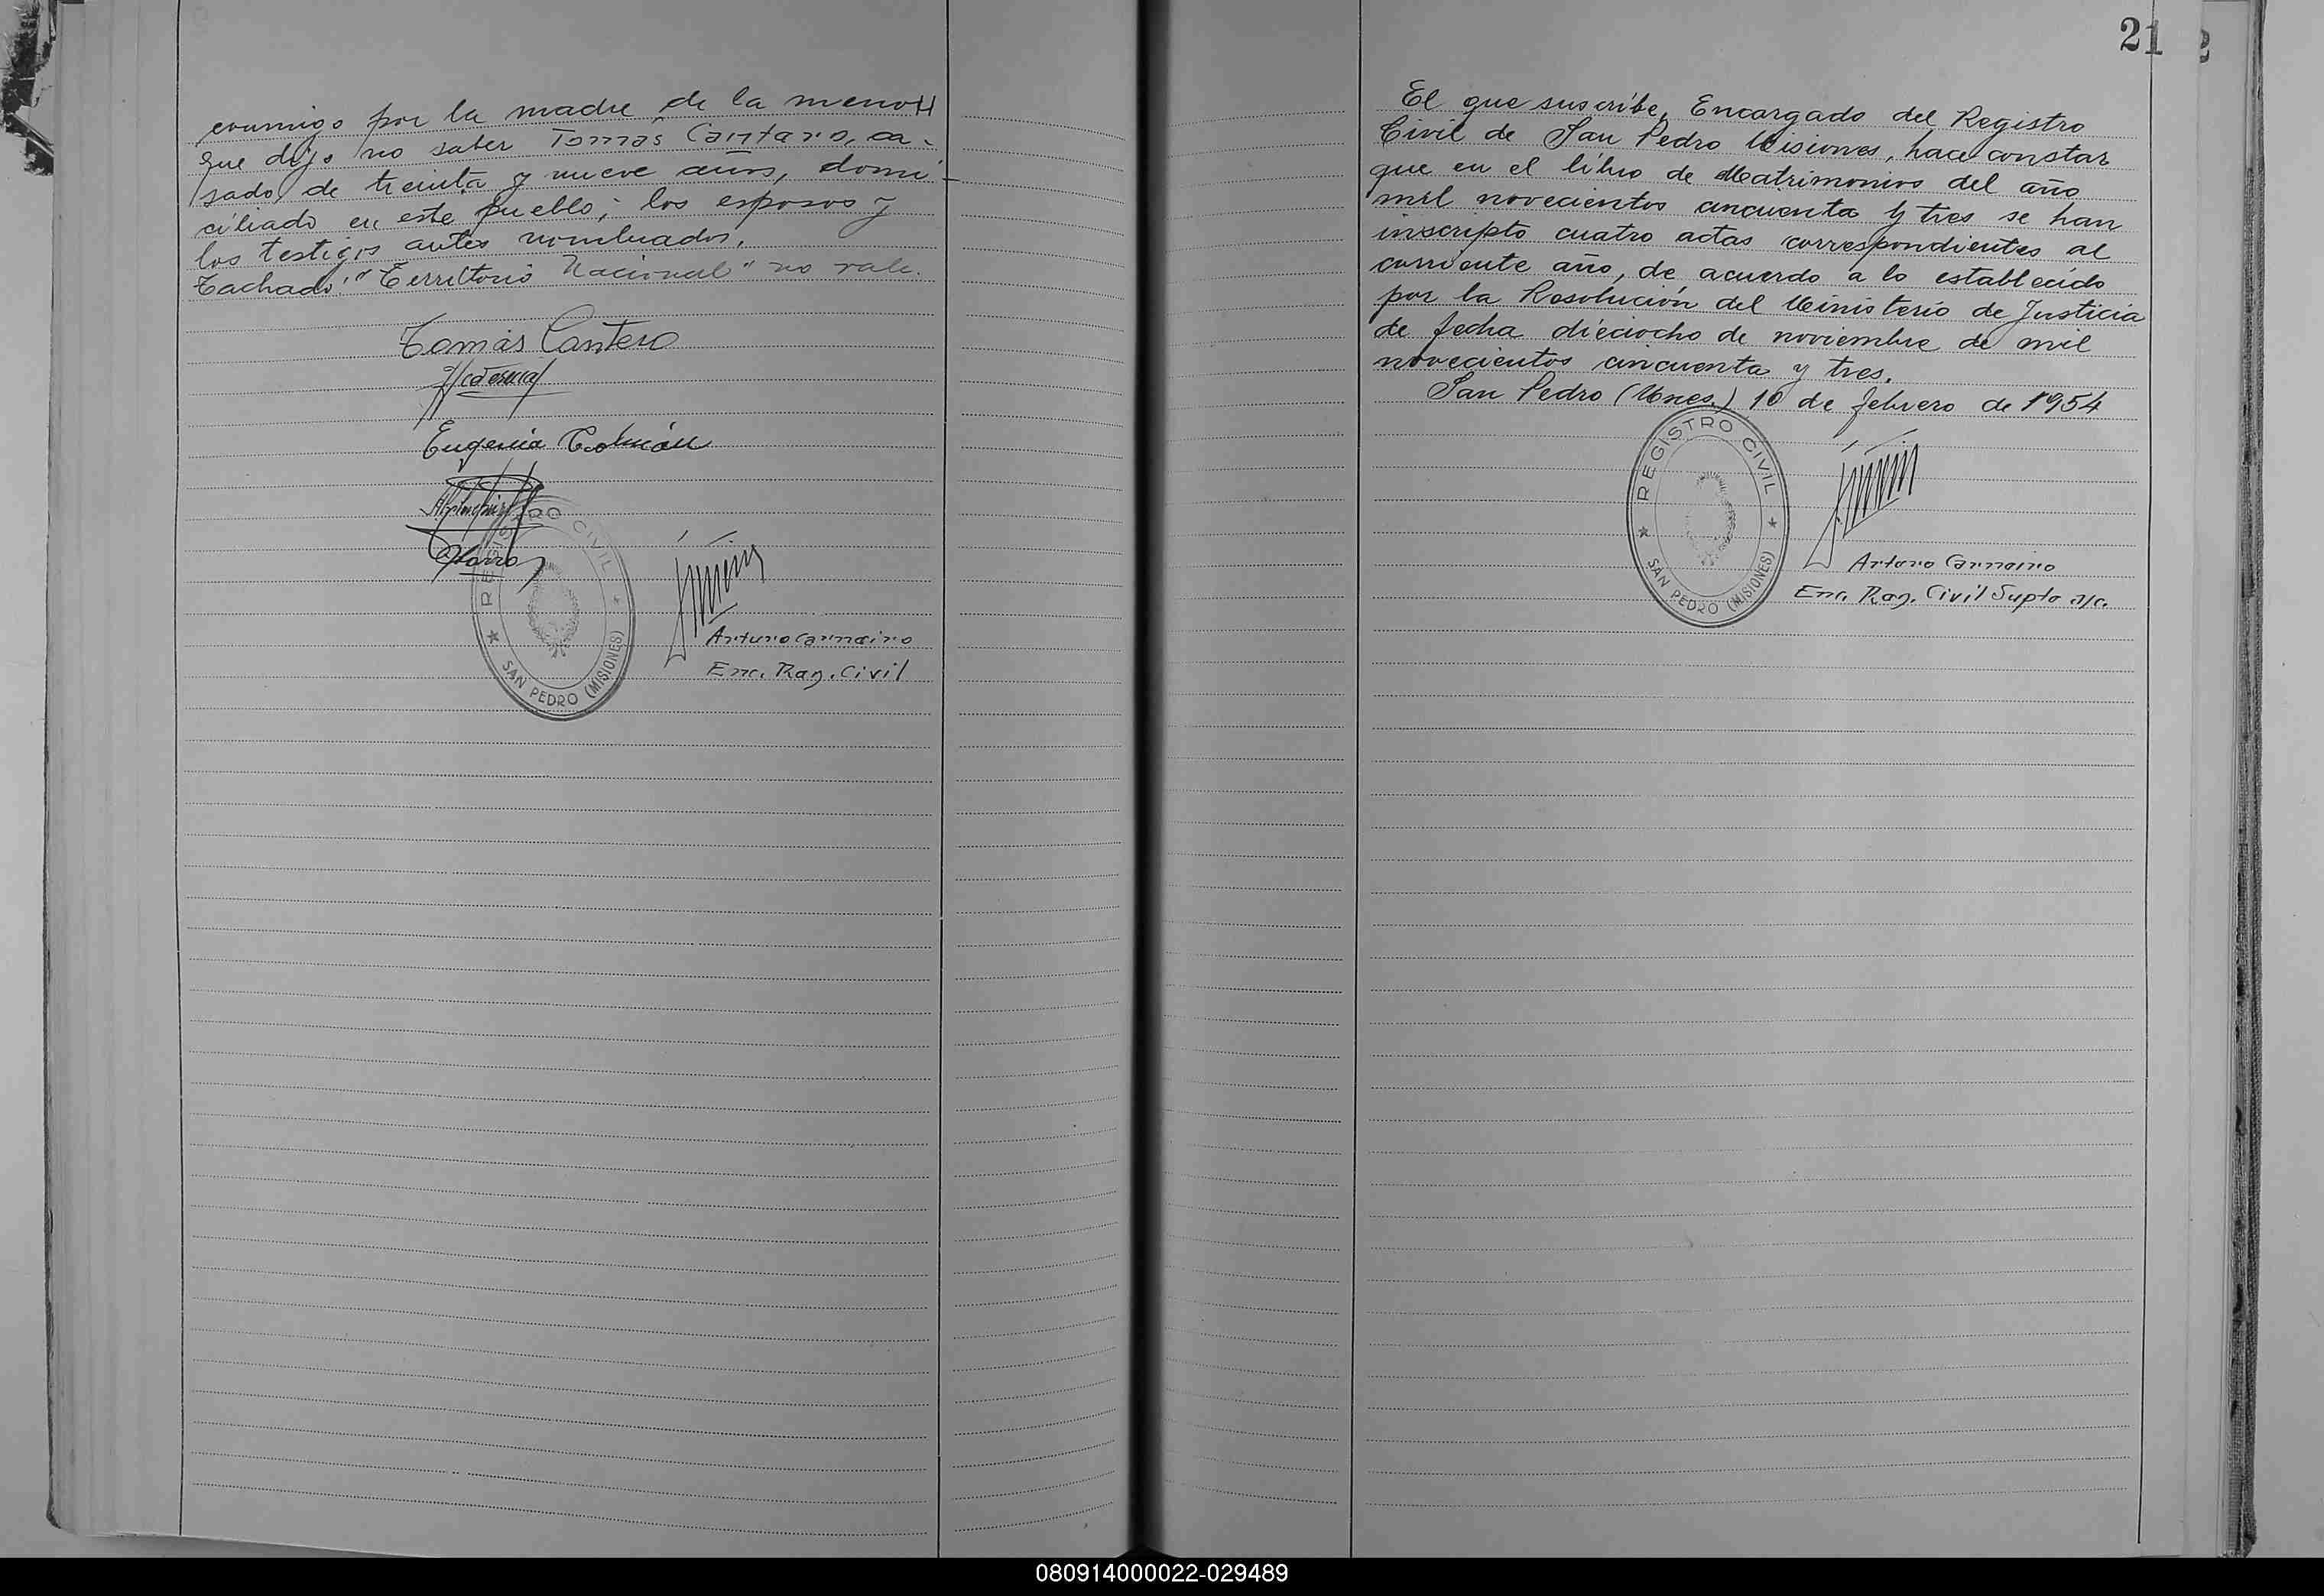 conmigo por la madre de la menor
que dijo no saber Tomás Cantero, ca-
sado, de treinta y nueve años, domi-
ciliado en este pueblo; los esposos y
los testigos antes nombrados.
Tachado: "Territorio Nacional" no vale.
Tomás Cantero
Eugenia
REGISTRO CIVIL
SAN PEDRO (MISIONES)
Arturo Carneiro
Enc. Reg. Civil
21
El que suscribe, Encargado del Registro
Civil de San Pedro Misiones, hace constar
que en el libro de Matrimonios del año
mil novecientos cincuenta y tres se han
inscripto cuatro actas correspondientes al
corriente año, de acuerdo a lo establecido
por la Resolución del Ministerio de Justicia
de fecha dieciocho de noviembre de mil
novecientos cincuenta y tres.
San Pedro (Mnes.) 10 de febrero de 1954
REGISTRO CIVIL
SAN PEDRO (MISIONES)
Arturo Carneiro
Enc. Reg. Civil Supte a/c.
080914000022-029489